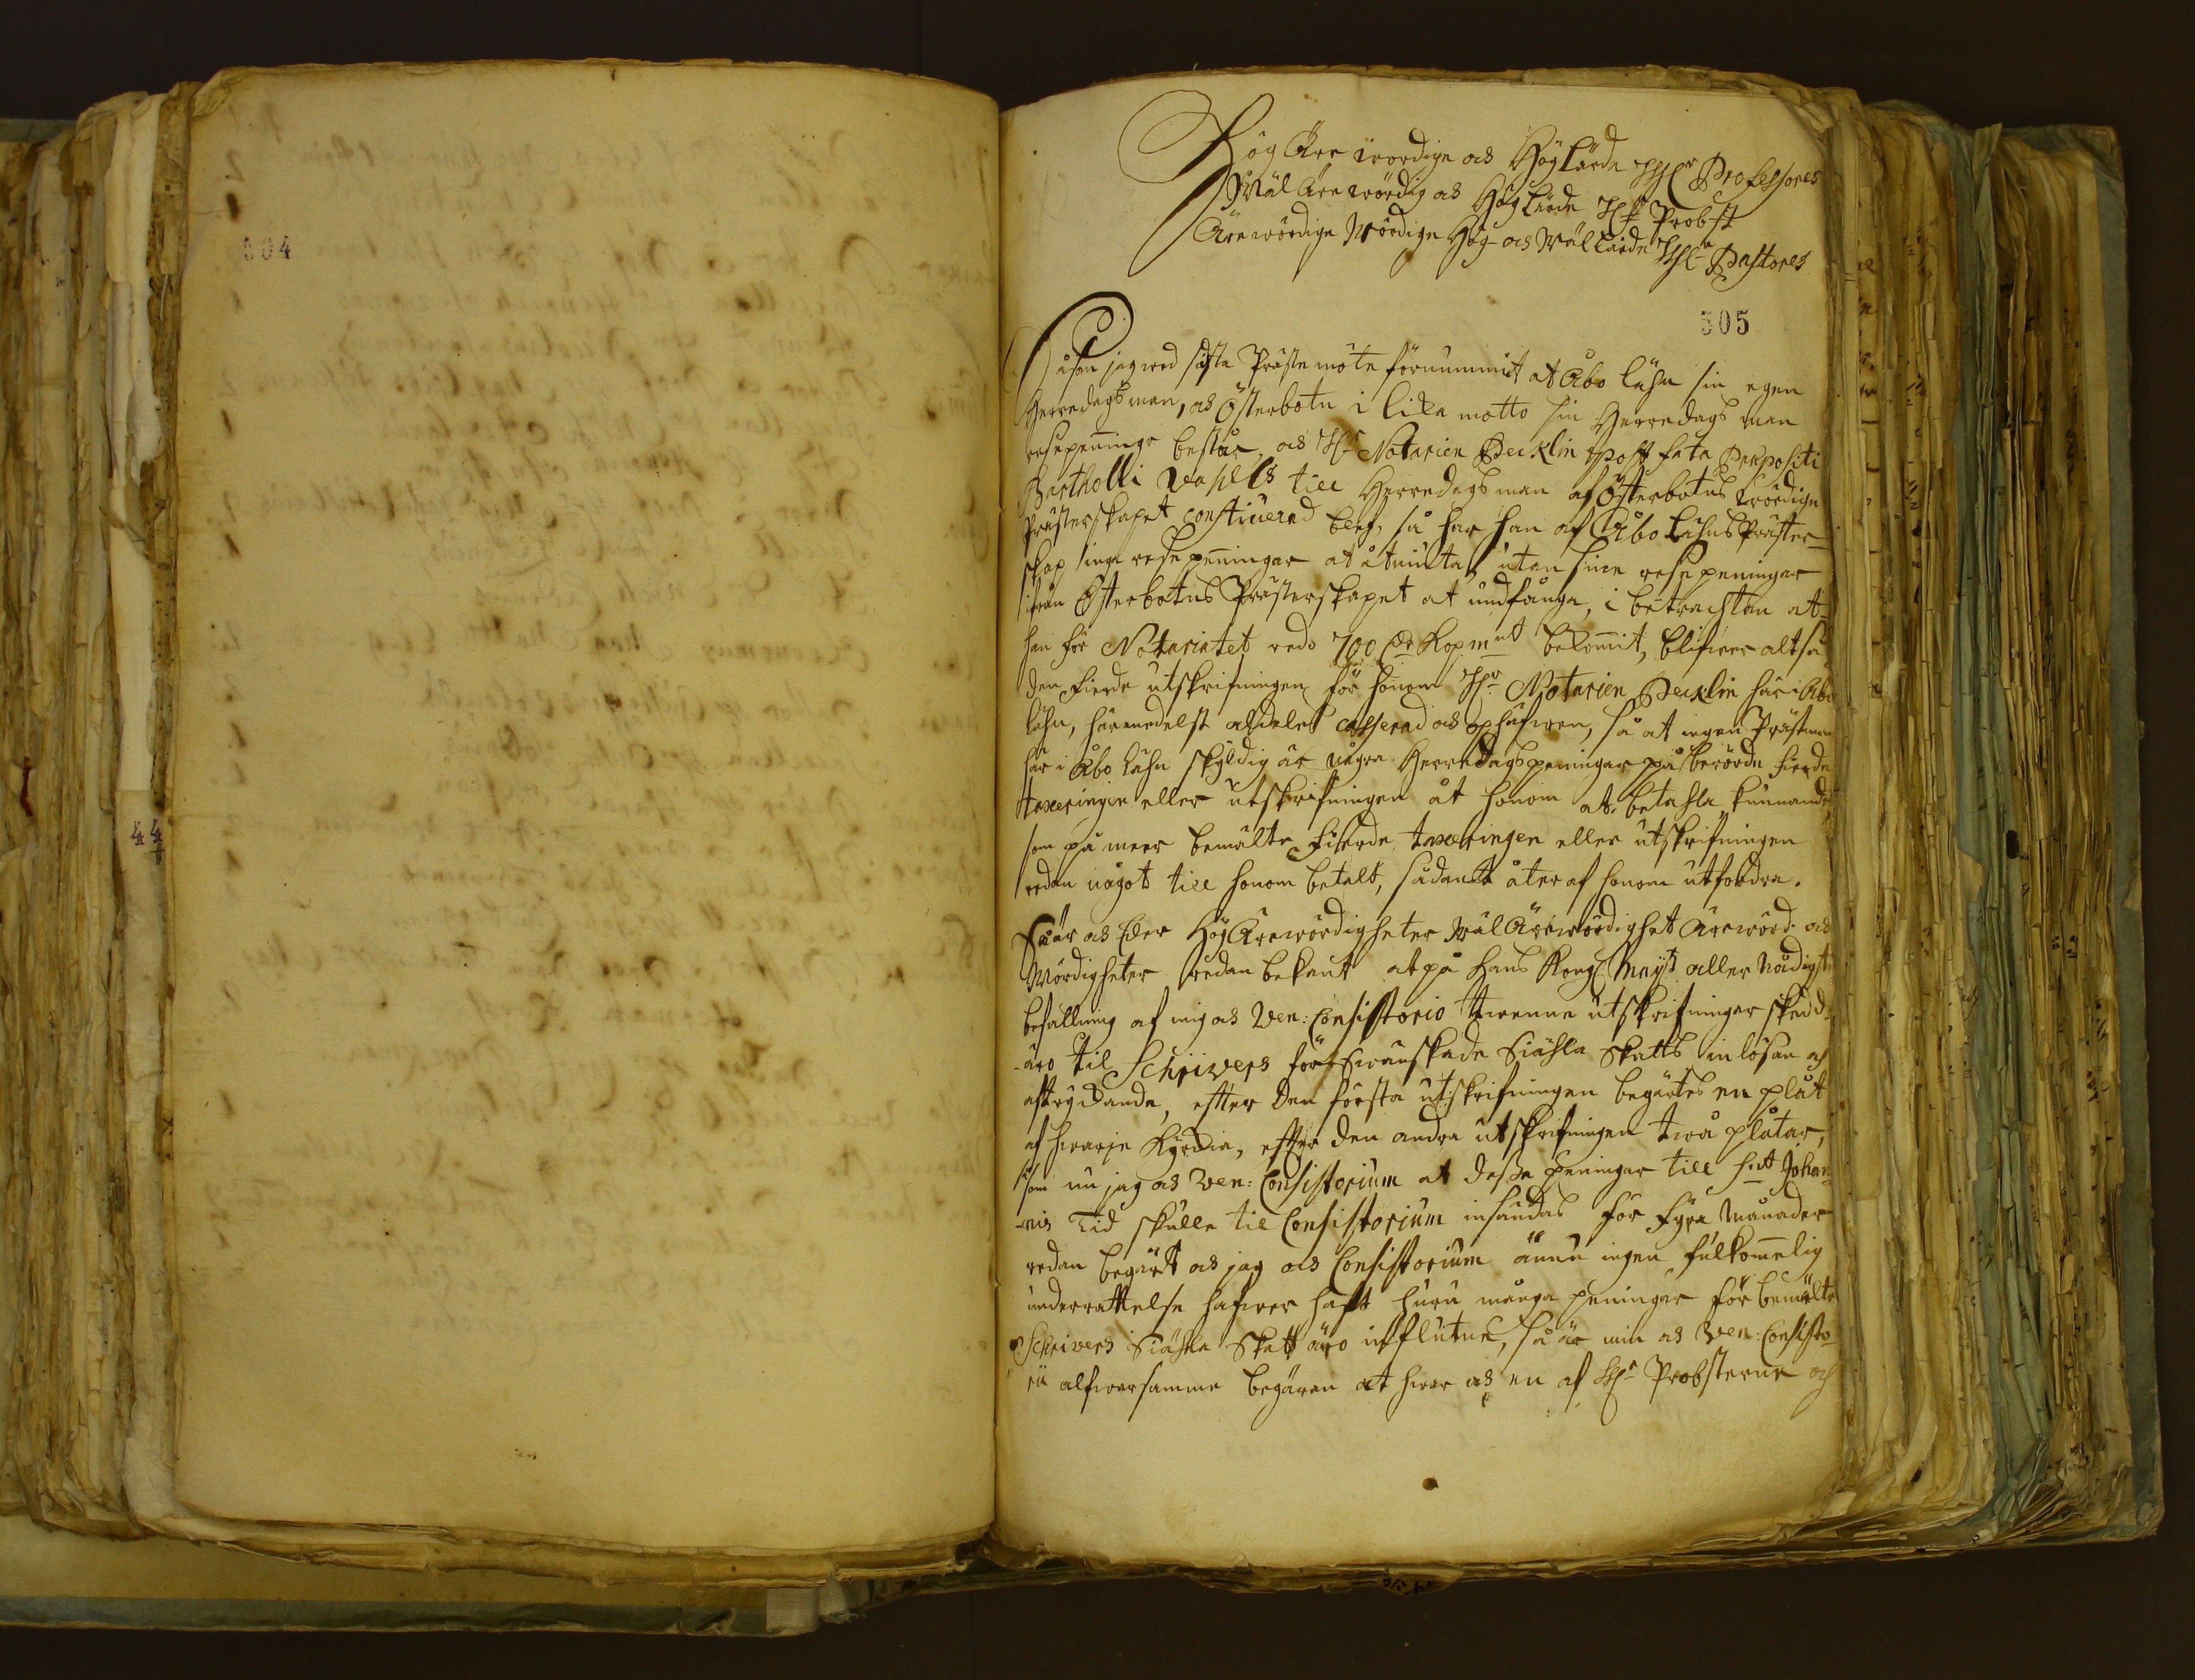 504
44
HögÄrewördige och Höglärde HHr Professores
WälÄrewördig och Höglärde Hr Probst
Ärewördige Wördige Hög- och Wällärde HHr Pastores
505
Såsom jag wed sidsta Prästemöte förnummit at Åbo lähn sin egen
Herredagsman, och Österbotn i lika motto sin Herredags man
resepeninge består, och Hr Notarien Decklin post fata Præpositi
Bartholli till Herredagsman af Österbotns wördige
Prästerskapet constituerad blef, så har han af Åbo Lähns Präster-
skap inga resepeningar at åtniuta, utan sine resepeningar
ifrån Österbotns Prästerskapet at undfånga, i betrachtan at
han för Notariatet redo 700 dr Kopmnt bekommit, blifwer altså
den fierde utskrifningen för honom Hr Notarien Decklin här i Åbo
lähn, härmedelst aldeles casserad och ophäfwen, så at ingen Prästman
här i Åbo lähn skyldig är någre Herredagspeningar på berörde fierde
taxeringen eller utskrifningen åt honom at betahla, kunnande
som på meer bemälte fierde taxeringen eller utskrifningen
redan något till honom betalt, sådant åter af honom utfordra.
Så är och Eder HögÄrewördigheter WälÄrewördighet Ärewörd: och
Wördigheter redan bekant at på Hans Kongl Mayts aller nådigste
befallning af mig och Ven: Consistorio twenne utskrifningar skedde
äro til Schrivers skatts inlösan och
, efter den första utskrifningen begärtes en plåt
af hwarje Kyrckia, efter den andra utskrifningen twå plåtar,
som nu jag och Ven: Consistorium at desse peningar till St Johan-
nis Tid skulle til Consistorium insändas för fyra månader
redan begärt och jag och Consistorium ännu ingen fulkommelig
underrättelse hafwer haft huru många peningar för bemälte
Schrivers skatt äro influtne, så är min och Ven: Consisto-
rii alfwersamme begäran at hwar och en af HHr Probsterne och